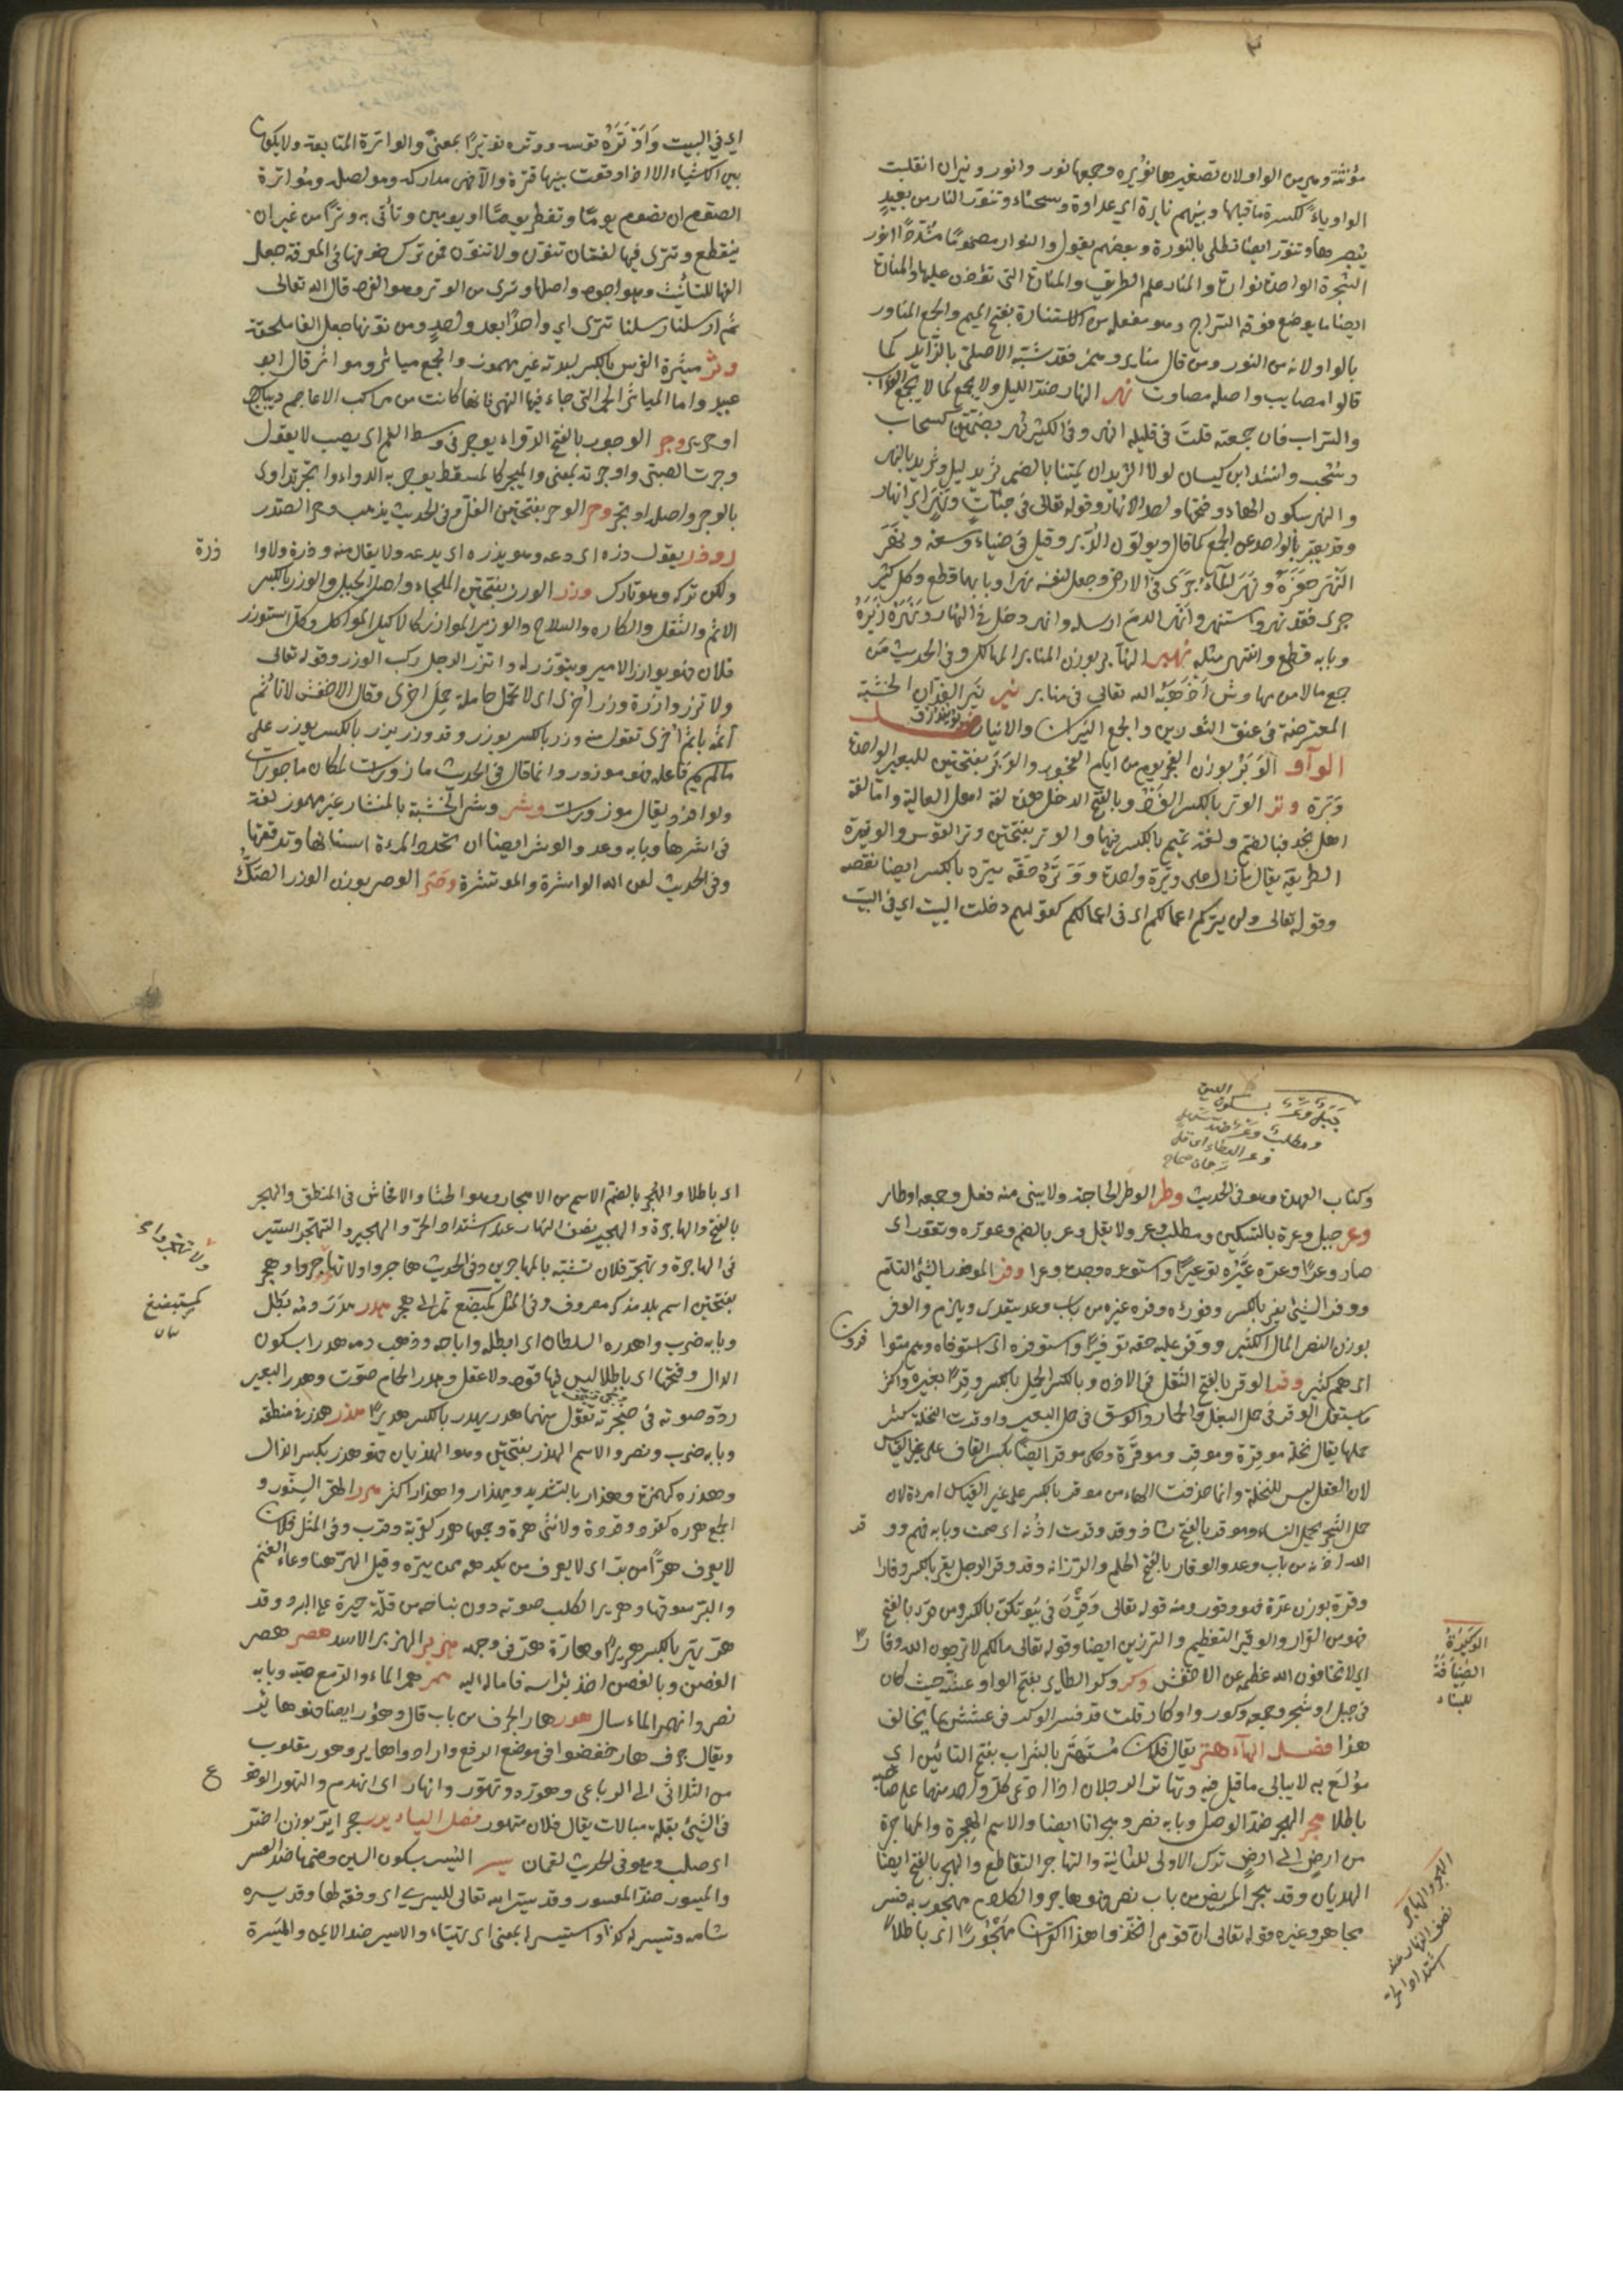 مؤنثة وهي من الواو لان تصغيرها نويرة وجمعها نور وانور ونيران انقلبت
الواو ياء لكسرة ما قبلها وبينهم نايرة اي عداوة وشحناء وتنور النار من بعيد
تبصرها وتنور ايضا تطلى بالنورة وبعضهم يقول والنوار مضموما مشددا نور
الشجرة الواحدة نوارة والمنار علم الطريق والمنارة التي يؤذن عليها والمنارة
ايضا ما يوضع فوقه السراج وهو مفعلة من الاستنارة بفتح الميم والجمع المناور
بالواو لانه من النور ومن قال مناير وهمز فقد شبه الاصلي بالزايد كما
قالوا مصايب واصله مصاوب نهر النهار ضد الليل ولا يجمع كما لا يجمع العذاب
والسراب فان جمعته قلت في قليله انهر وفي الكثير نهر بضمتين كسحاب
وسحب وانشد ابن كيسان لولا الثريدان لمتنا بالضمر ثريد ليل وثريد بالنهر
والنهر بسكون الهاء وفتحها واحد الانهار وقوله تعالى في جنات ونهر اي انهار
وقد يعبر بالواحد عن الجمع كما قال ويولون الدبر وقيل في ضياء وسعة ونهر
النهر حفره ونهر الماء جرى في الارض وجعل لنفسه نهرا وبابهما قطع وكل كثير
جرى فقد نهر واستنهر وانهر الدم ارسله وانهر دخل في النهار ونهره زبره
وبابه قطع وانتهره مثله نهبر النهابر بوزن المنابر المهالك وفي الحديث من
جمع مالا من مهاوش اذهبه الله تعالى في نهابر نير نير الفدان الخشبة
المعترضة في عنق الثورين والجمع النيران والانيار فصل
الواو الوبر بوزن الفجر يوم من ايام العجوز والوبر بفتحتين للبعير الواحدة
وبرة وتر الوتر بالكسر الفرد وبالفتح الذحل هذه لغة اهل العالية واما لغة
اهل نجد فبالضم ولغة تميم بالكسر فيهما والوتر بفتحتين وتر القوس والوتيرة
الطريقة يقال ما زال على وتيرة واحدة ووتره حقه يتره بالكسر ايضا نقصه
وقوله تعالى ولن يتركم اعمالكم اي في اعمالكم كقولهم دخلت البيت اي في البيت
اي في البيت واوتره قوسه ووتره توتيرا بمعنى والواترة المتابعة ولا يكون
بين الاشياء الا اذا وقعت بينها فترة والا فهي مداركة ومواصلة ومواترة
الصوم ان تصوم يوما وتفطر يوما او يومين وتأتي به وترا من غير ان
ينقطع وتترى فيها لغتان تنون ولا تنون فمن ترك صرفها في المعرفة جعل
الفها للتأنيث وهو اجود واصلها وترى من الوتر وهو الفرد قال الله تعالى
ثم ارسلنا رسلنا تترى اي واحدا بعد واحد ومن نونها جعل الفها ملحقة
وثر ميثرة الفرس بالكسر لبدته غير مهموز والجمع مياثر ومواثر قال ابو
عبيد واما المياثر الحمر التي جاء فيها النهي فانها كانت من مراكب الاعاجم ديباج
او حرير وجر الوجور بالفتح الدواء يوجر في وسط الفم اي يصب لا يقول
وجرت الصبي واوجرته بمعنى والميجر كالمسقط يوجر به الدواء واتجر تداوى
بالوجر واصله اوتجر وحر الوحر بفتحتين الغل وفي الحديث يذهب وحر الصدر
وذر يقول ذره اي دعه وهو يذره اي يدعه ولا يقال منه وذره ولا واذر
ولكن تركه وهو تارك وزر الوزر بفتحتين الملجاء واصله الجبل والوزر بالكسر
الاثم والثقل والكاره والسلاح والوزير الموازر كالاكيل المواكل وقد استوزر
فلان فهو يوازر الامير ويتوزر له واتزر الرجل ركب الوزر وقوله تعالى
ولا تزر وازرة وزر اخرى اي لا تحمل حاملة حمل اخرى وقال الاخفش لا تاثم
آثمة باثم اخرى تقول منه وزر بالكسر يوزر وقد وزر يزر بالكسر ويوزر على
ما لم يسم فاعله فهو موزور وانما قال في الحديث مازورات لمكان ماجورات
ولو افرد يقال موزورات وشر وشر الخشبة بالمنشار غير مهموز لغة
في اشرها وبابه وعد والوشر ايضا ان تحدد المرءة اسنانها وترققها
وفي الحديث لعن الله الواشرة والموتشرة وصر الوصر بوزن الوزر الصك
وذرة
جبل وعر بسكون العين
ومطلب وعر ضد سهل
وعر العطاء اي قل
ترجمان صحاح
وكتاب العهدة وهو في الحديث وطر الوطر الحاجة ولا يبنى منه فعل وجمعه اوطار
وعر جبل وعر بالتسكين ومطلب وعر ولا يقل وعر بالضم وعورة وتوعر اي
صار وعرا ووعره غيره توعيرا واستوعره وجده وعرا وفر الموفور الشئ التام
ووفر الشئ يفر بالكسر وفورا ووفره غيره من باب وعد يتعدى ويلزم والوفر
بوزن النصر المال الكثير ووفر عليه حقه توفيرا واستوفره اي استوفاه وهم متوا
فرون
اي هم كثير وقر الوقر بالفتح الثقل في الاذن وبالكسر الحمل بالكسر وقد اوقر بعيره واكثر
ما يستعمل الوقر في حمل البغل والحمار والوسق في حمل البعير واوقرت النخلة كثر
حملها يقال نخلة موقرة وموقر وموقرة وحكي موقر ايضا بكسر القاف على غير القياس
لان الفعل ليس للنخلة وانما حذفت الهاء من موقر بالكسر على غير القياس امراة لان
حمل الشجر بحمل النساء وموقر بالفتح شاذ وقد وقرت اذنه اي صمت وبابه فهم وو
قر
الله اذنه من باب وعد والوقار بالفتح الحلم والرزانة وقد وقر الرجل يقر بالكسر وقارا
وقرة بوزن عدة فهو وقور ومنه قوله تعالى وقرن في بيوتكن بالكسر ومن قرء بالفتح
فهو من القرار والتوقير التعظيم والترزين ايضا وقوله تعالى مالكم لا ترجون لله وقا
را
اي لا تخافون الله عظمة عن الاخفش وكر وكر الطاير بفتح الواو عشه حيث كان
في جبل او شجر وجمعه وكور واوكار قلت قد فسر الوكر في عشش بما يخالف
هذا فصل الهاء هتر يقال فلان مستهتر بالشراب بفتح التائين اي
مولع به لا يبالي ما قيل فيه وتهاتر الرجلان اذا ادعى كل واحد منهما على صاحبه
باطلا هجر الهجر ضد الوصل وبابه نصر وهجرانا ايضا والاسم الهجرة والمهاجرة
من ارض الى ارض ترك الاولى للثانية والتهاجر التقاطع والهجر بالفتح ايضا
الهذيان وقد هجر المريض من باب نصر فهو هاجر والكلام مهجور به فسر
مجاهد وغيره قوله تعالى ان قومي اتخذوا هذا القرآن مهجورا اي باطلا
الوكيرة
الضيافة
للبناء
الهجير والهاجر
نصف النهار عند
اشتداد الحر
اي باطلا والهجر بالضم الاسم من الاهجار وهو الخنا والافحاش في المنطق والهجر
بالفتح والهاجرة والهجير نصف النهار عند اشتداد الحر والهجير والتهجر السير
في الهاجرة وتهجر فلان تشبه بالمهاجرين وفي الحديث هاجروا ولا تهجروا وهجر
بفتحتين اسم بلد مذكر معروف وفي المثل كمبضع تمر الى هجر هدر هدر دمه بطل
وبابه ضرب واهدره السلطان اي ابطله واباحه وذهب دمه هدرا بسكون
الدال وفتحها اي باطلا ليس فيها قود ولا عقل وهدر الحمام صوت وهدر البعير
ردد صوته في حنجرته تقول منهما هدر يهدر بالكسر هديرا هذر هذر في منطقه
وبابه ضرب ونصر والاسم الهذر بفتحتين وهو الهذيان فهو هذر بكسر الذال
وهذرة كهمزة وهذار بالتشديد ومهذار واهذر اكثر هرر الهر السنور و
الجمع هررة كقرد وقردة والانثى هرة وجمعها هرر كقربة وقرب وفي المثل فلان
لا يعرف هرا من بر اي لا يعرف من يكرهه ممن يبره وقيل الهر هنا دعاء الغنم
والبر سوقها وهرير الكلب صوته دون نباحه من قلة صبره على البرد وقد
هر يهر بالكسر هريرا وهاره هر في وجهه هزبر الهزبر الاسد هصر هصر
الغصن وبالغصن اخذ براسه فاماله اليه همر همر الماء والدمع صبه وبابه
نصر وانهمر الماء سال هور هار الجرف من باب قال وهؤر ايضا فهو هاير
ويقال جرف هار خفضوا في موضع الرفع وارادوا هاير وهو مقلوب
من الثلاثي الى الرباعي وهوره وتهور وانهار اي انهدم والتهور الوقو
ع
في الشئ بقلة مبالات يقال فلان متهور فصل الياء يرر حجر اير بوزن اضر
اي صلب وهو في حديث لقمان يسر اليسر بسكون السين وضمها ضد العسر
والميسور ضد المعسور وقد يسره الله تعالى لليسرى اي وفقه لها وقد يسره
شامه وتيسر له كذا واستيسر بمعنى اي تهياء والايسر ضد الايمن والميسرة
ولا تهجروا
كمستبضع